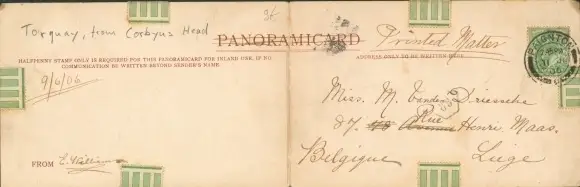 Torquay, from Corbyns Head
PANORAMICARD
HALFPENNY STAMP ONLY IS REQUIRED FOR THIS PANORAMICARD FOR INLAND USE, IF NO
COMMUNICATION BE WRITTEN BEYOND SENDER'S NAME.
9/6/06
FROM E. Williams
Printed Matter
ADDRESS ONLY TO BE WRITTEN HERE
PAIGNTON
Miss. M. Vanden Driessche
87. Rue Henri Maas.
Belgique Liège